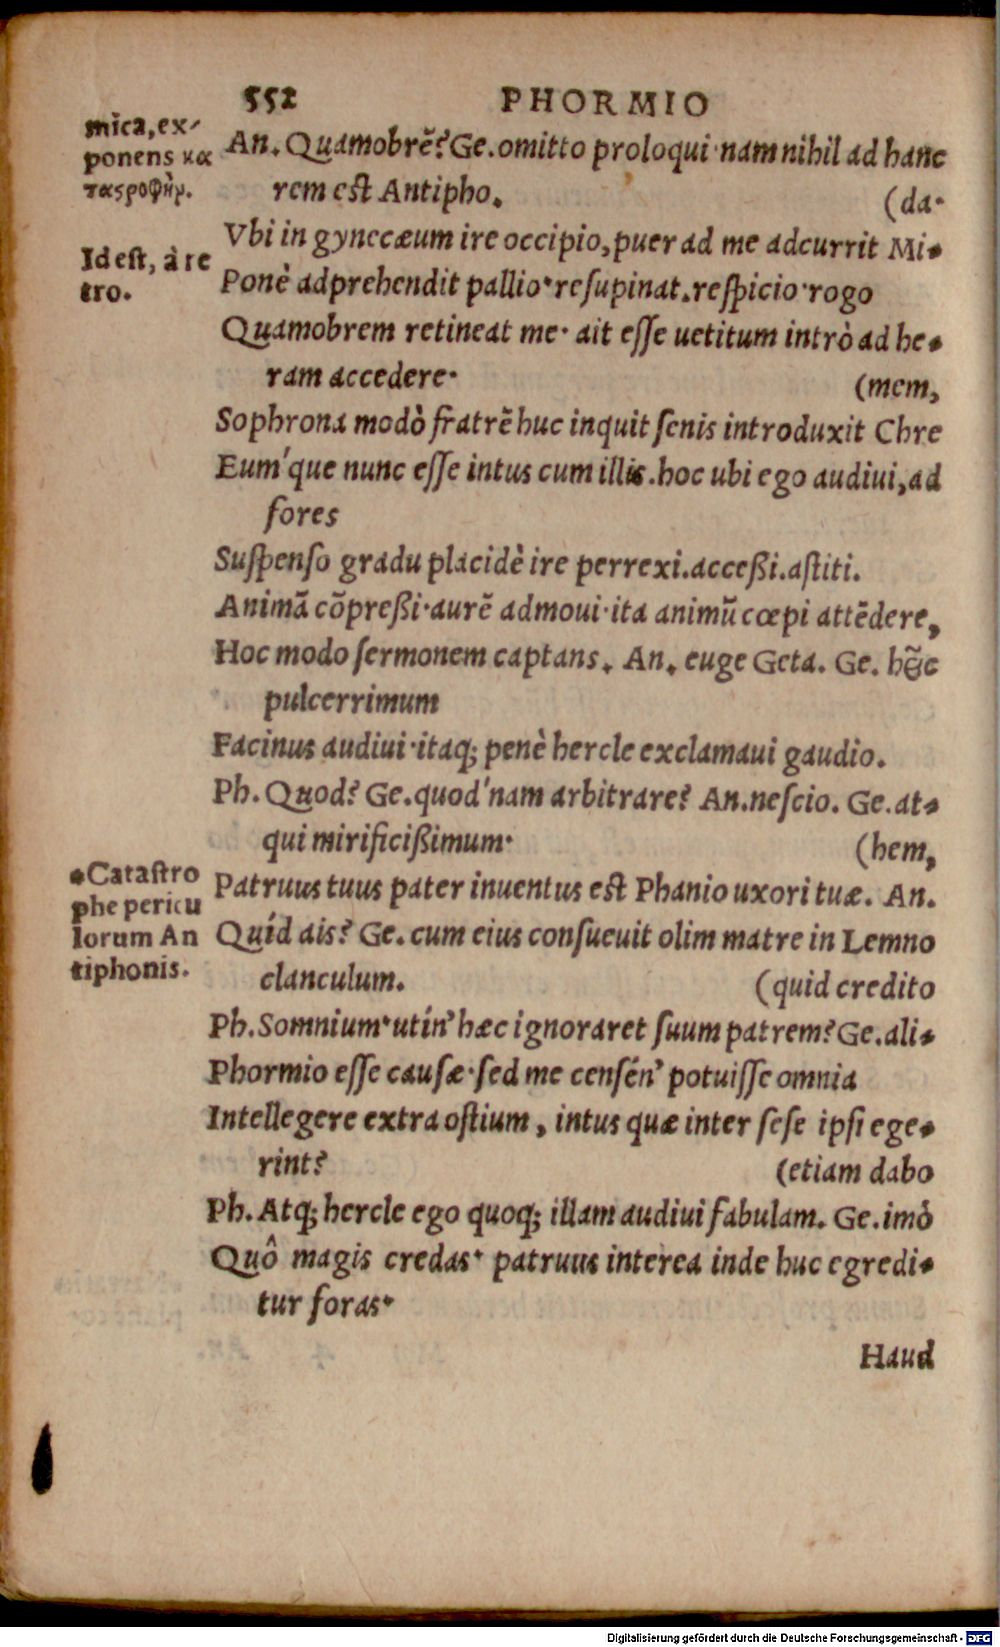 552 PHORMIO
mĩca,ex-
ponens κα
ταςροφὴν.
An. Quamobrẽ? Ge. omitto proloqui·nam nihil ad hanc
rem est Antipho. (da·
Vbi in gynecæum ire occipio, puer ad me adcurrit Mi-
Id est, à re
tro.
Ponè adprehendit pallio·resupinat.respicio·rogo
Quamobrem retineat me· ait esse uetitum intrò ad he-
ram accedere· (mem,
Sophrona modò fratrẽ huc inquit senis introduxit Chre
Eum'que nunc esse intus cum illis.hoc ubi ego audiui, ad
fores
Suspenso gradu placidè ire perrexi.acceßi.astiti.
Animã cõpreßi·aurẽ admoui·ita animũ cœpi attẽdere,
Hoc modo sermonem captans. An. euge Geta. Ge. hĩc
pulcerrimum
Facinus audiui·itaq; penè hercle exclamaui gaudio.
Ph. Quod? Ge. quod'nam arbitrare? An. nescio. Ge. at-
qui mirificißimum· (hem,
•Catastro
phe pericu
lorum An
tiphonis.
Patruus tuus pater inuentus est Phanio uxori tuæ. An.
Quíd ais? Ge. cum eius consueuit olim matre in Lemno
clanculum. (quid credito
Ph. Somnium·utín' hæc ignoraret suum patrem? Ge. ali-
Phormio esse causæ·sed me censén' potuisse omnia
Intellegere extra ostium, intus quæ inter sese ipsi ege-
rint? (etiam dabo
Ph. Atq; hercle ego quoq; illam audiui fabulam. Ge. imò
Quô magis credas· patruus interea inde huc egredi-
tur foras·
Haud
Digitalisierung gefördert durch die Deutsche Forschungsgemeinschaft - DFG